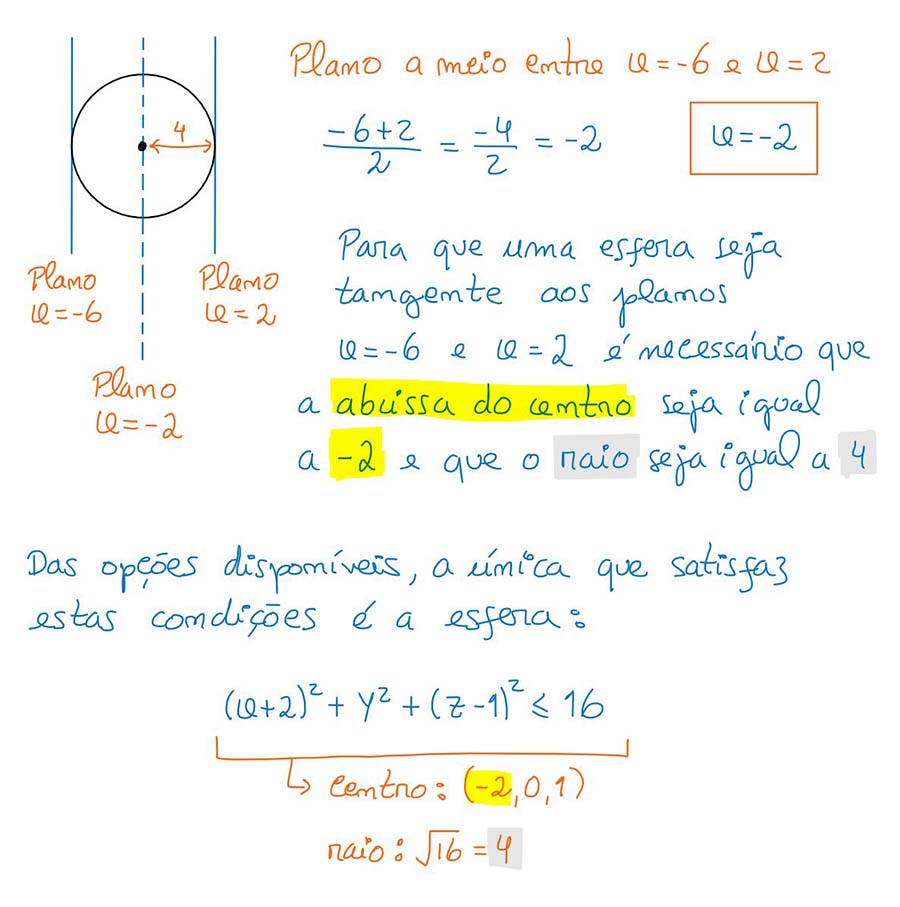 Plano a meio entre x=-6 e x=2
4
(-6+2)/2 = -4/2 = -2
x=-2
Para que uma esfera seja
tangente aos planos
x=-6 e x=2 é necessário que
a abcissa do centro seja igual
a -2 e que o raio seja igual a 4
Plano
x=-6
Plano
x=2
Plano
x=-2
Das opções disponíveis, a única que satisfaz
estas condições é a esfera:
(x+2)²+y²+(z-1)²≤16
centro: (-2,0,1)
raio: √16=4